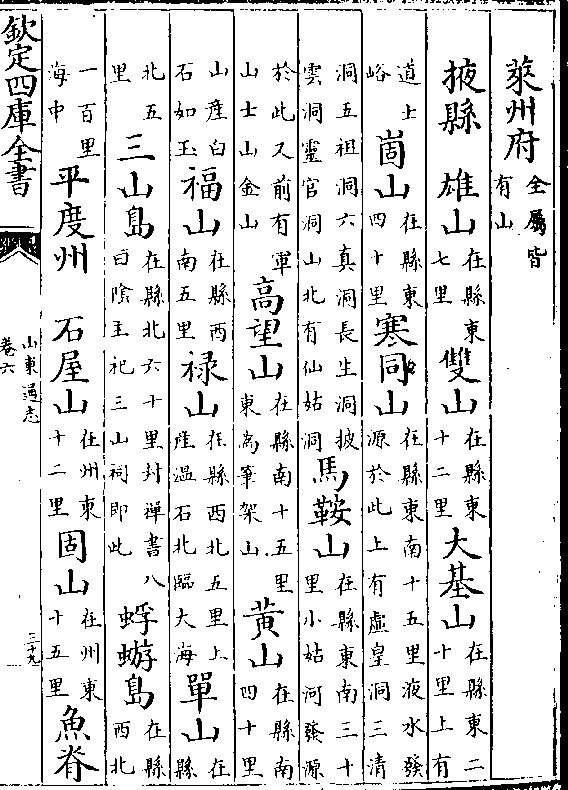 萊州府全屬皆有山
掖縣 雄山在縣東七里雙山在縣東十二里大基山在縣東二十里上有
道士峪崮山在縣東四十里寒同山在縣東南十五里液水發源於此上有虛皇洞三清
洞五祖洞六真洞長生洞披雲洞靈官洞山北有仙姑洞馬鞍山在縣東南三十里小姑河發源
於此又前有軍山士山金山高望山在縣南十五里東為筆架山黃山在縣南四十里
山產白石如玉福山在縣西南五里禄山在縣西北五里上產溫石北臨大海單山在縣
北五里三山島在縣北六十里封禪書八曰陰主祀三山祠即此蜉蝣島在縣西北
一百里海中平度州 石屋山在州東十二里固山在州東十五里魚脊
欽定四庫全書
山東通志
卷六
三十九